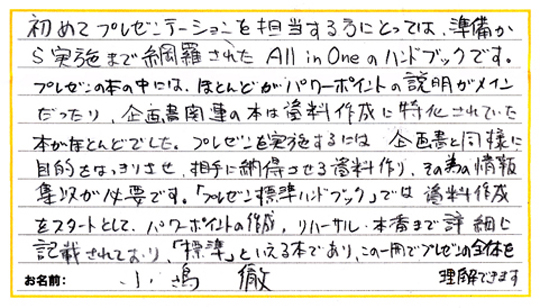 初めてプレゼンテーションを担当する方にとっては、準備か
ら実施まで網羅された All in One のハンドブックです。
プレゼンの本の中には、ほとんどがパワーポイントの説明がメイン
だったり、企画書関連の本は資料作成に特化されていた
本がほとんどでした。プレゼンを実施するには 企画書と同様に
目的をはっきりさせ、相手に納得させる資料作り、その為の情報
集収が必要です。「プレゼン標準ハンドブック」では 資料作成
をスタートとして、パワーポイントの作成，リハーサル・本番まで詳細に
記載されており、「標準」といえる本であり、この一冊でプレゼンの全体を
理解できます
お名前: 小嶋 徹